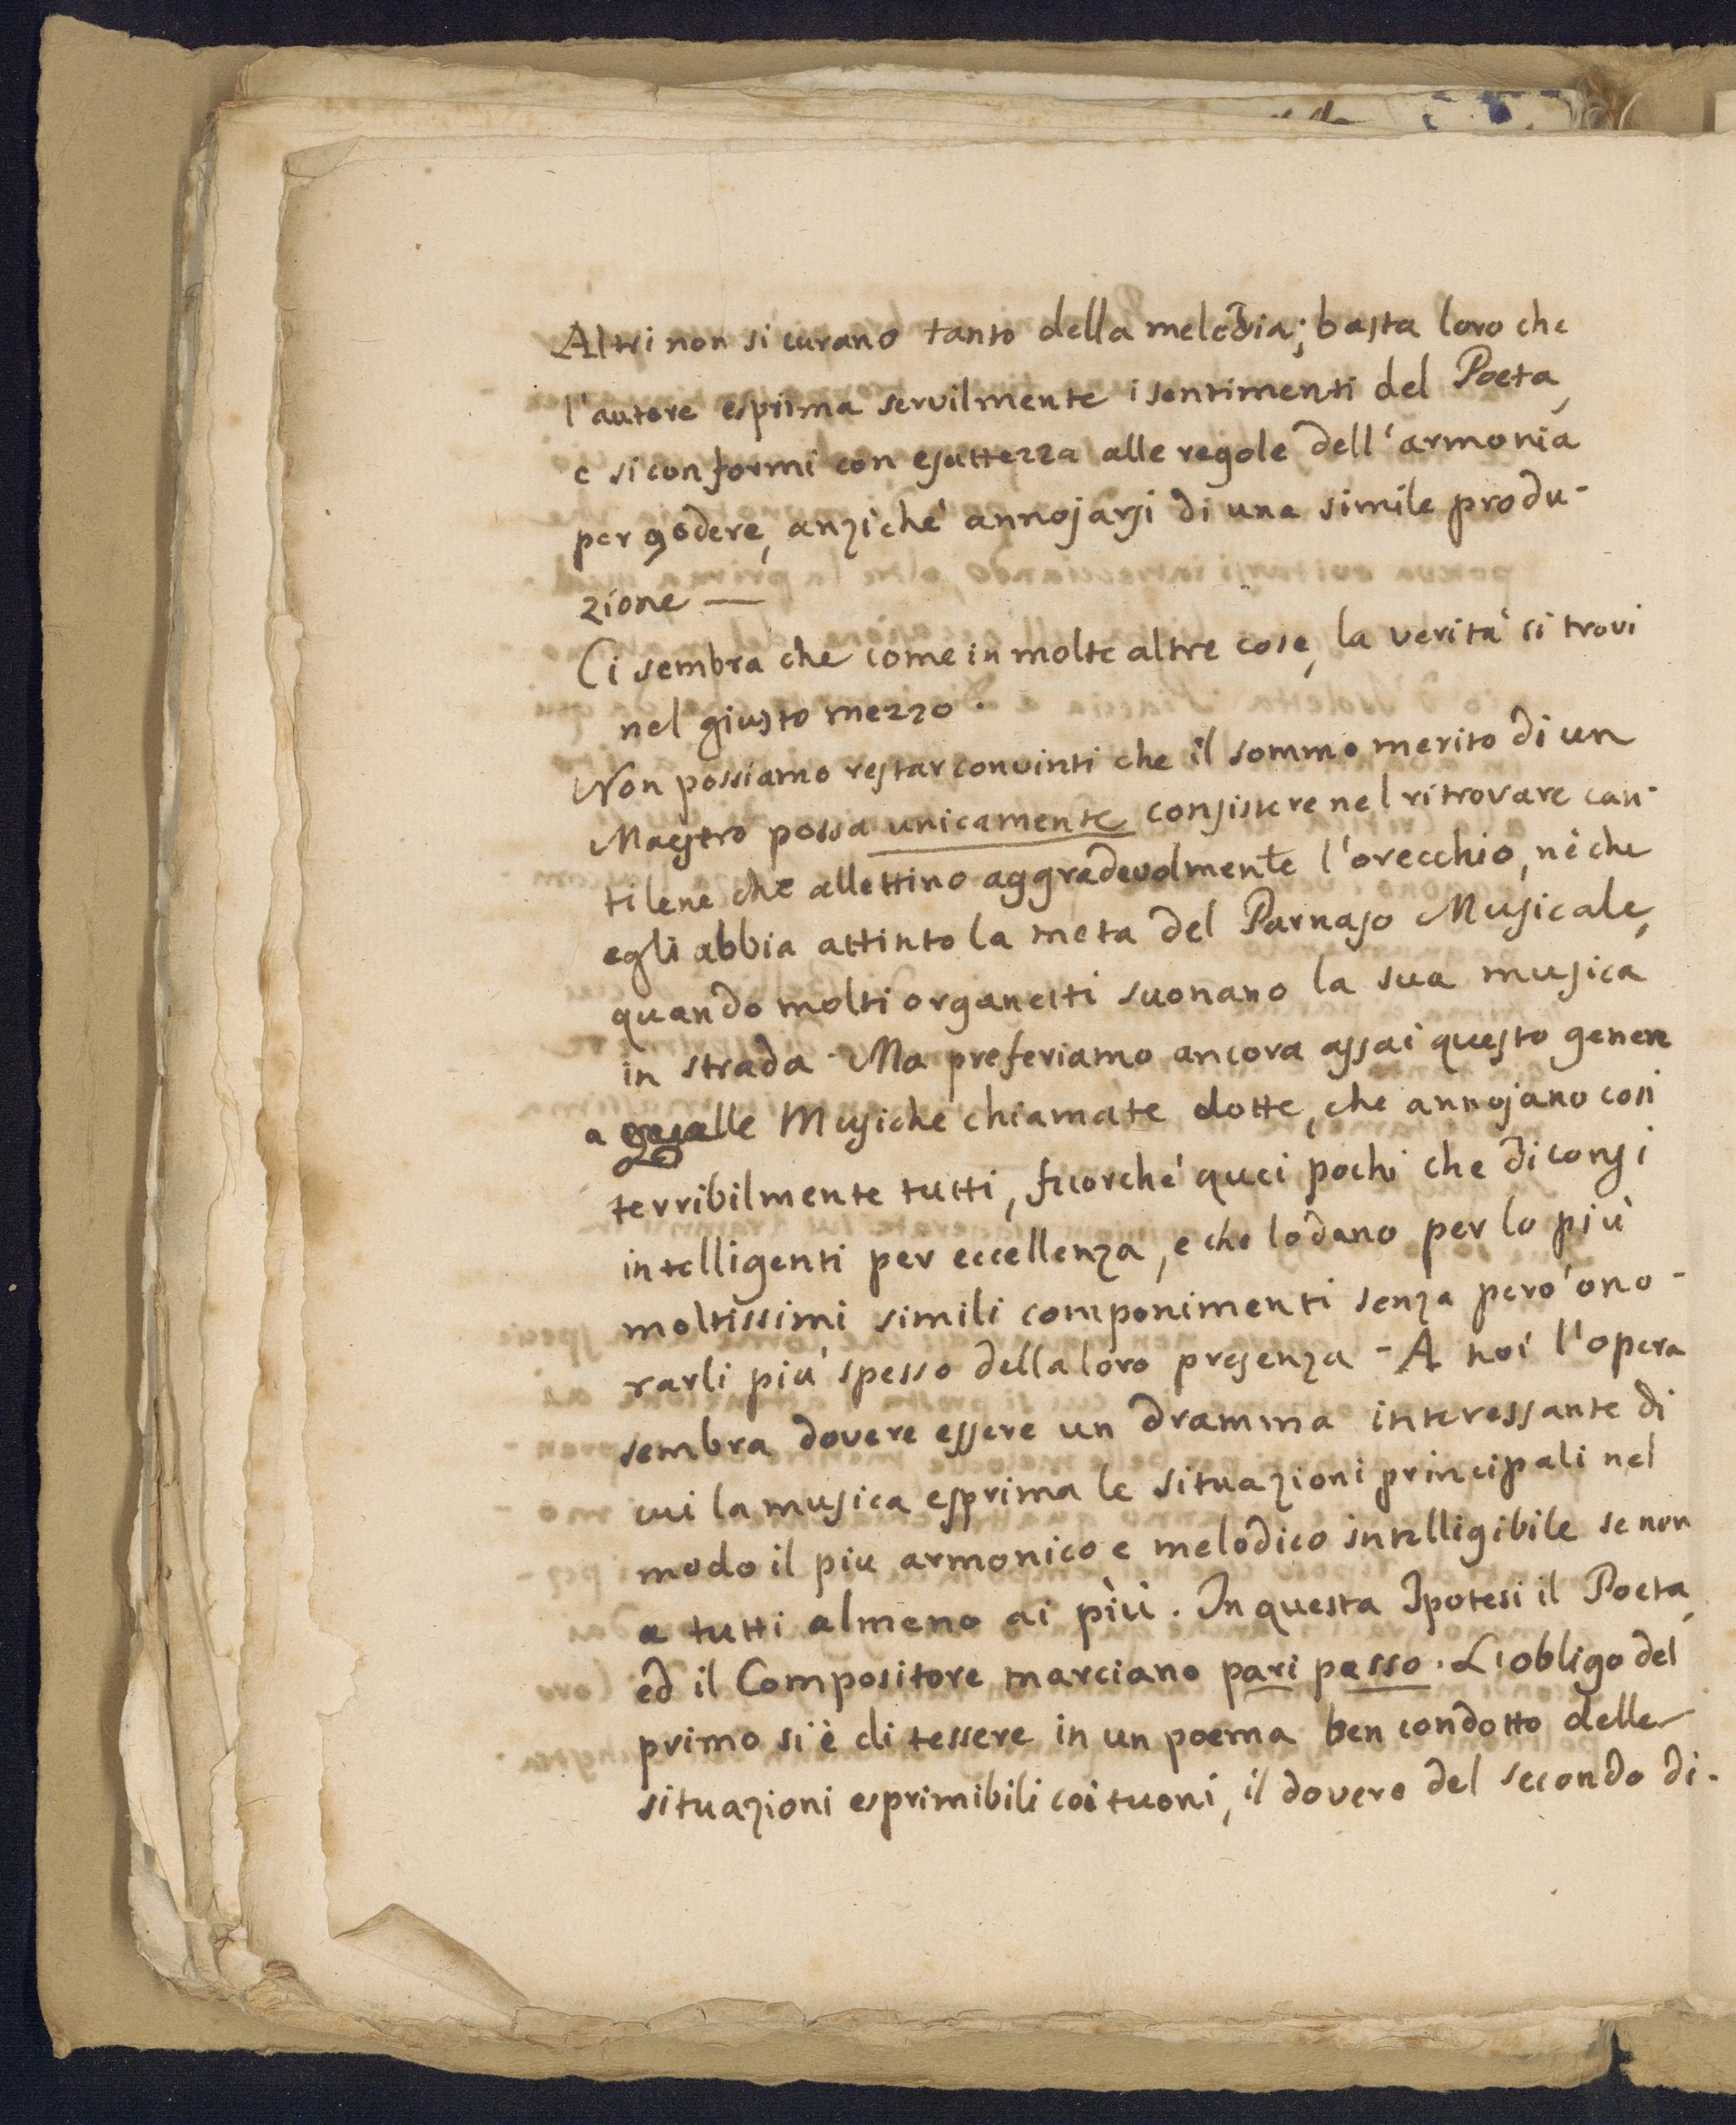 Altri non si curano tanto della melodia; basta loro che
l'autore esprima servilmente i sentimenti del Poeta,
e si conformi con esattezza alle regole dell'armonia
per godere, anziché annojarsi di una simile produ-
zione —
Ci sembra che come in molte altre cose, la verità si trovi
nel giusto mezzo.
Non possiamo restar convinti che il sommo merito di un
Maestro possa unicamente consistere nel ritrovare can-
tilene che allettino aggradevolmente l'orecchio, nè che
egli abbia attinto la meta del Parnaso Musicale,
quando molti organetti suonano la sua musica
in strada - Ma preferiamo ancora assai questo genere
a alle Musiche chiamate dotte, che annojano così
terribilmente tutti, fuorché quei pochi che diconsi
intelligenti per eccellenza, e che lodano per lo più
moltissimi simili componimenti senza però ono-
rarli più spesso della loro presenza - A noi l'opera
sembra dovere essere un dramma interessante di
cui la musica esprima le situazioni principali nel
modo il piu armonico e melodico intelligibile se non
a tutti almeno ai più. In questa Ipotesi il Poeta,
ed il Compositore marciano pari passo. L'obligo del
primo si è di tessere in un poema ben condotto delle
situazioni esprimibili coi tuoni, il dovere del secondo di-